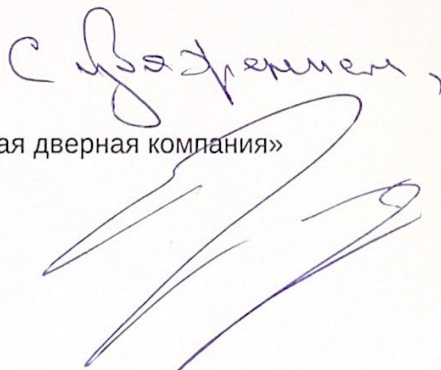 С уважением,
ая дверная компания»